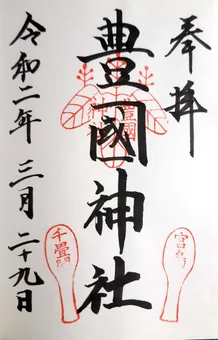 奉拝
豊國神社
令和二年 三月 二十九日
千畳閣
宮島